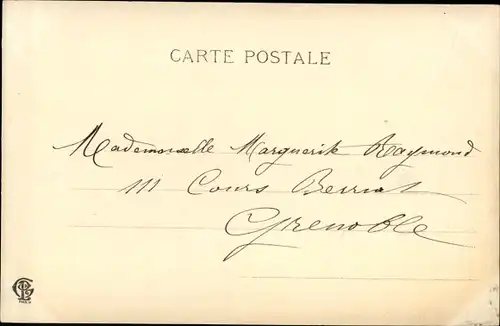 CARTE POSTALE
Mademoiselle Marguerite Raymond
111 Cours Berriat
Grenoble